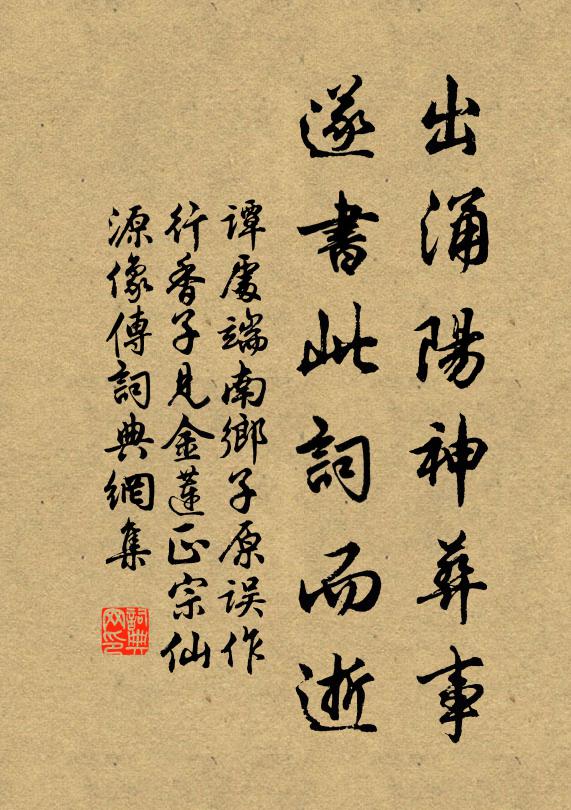 出涌陽神葬事
遂書此詞而逝
譚處端南鄉子原误作
行香子見金蓮正宗仙
源像傳詞典網集
詞典网印